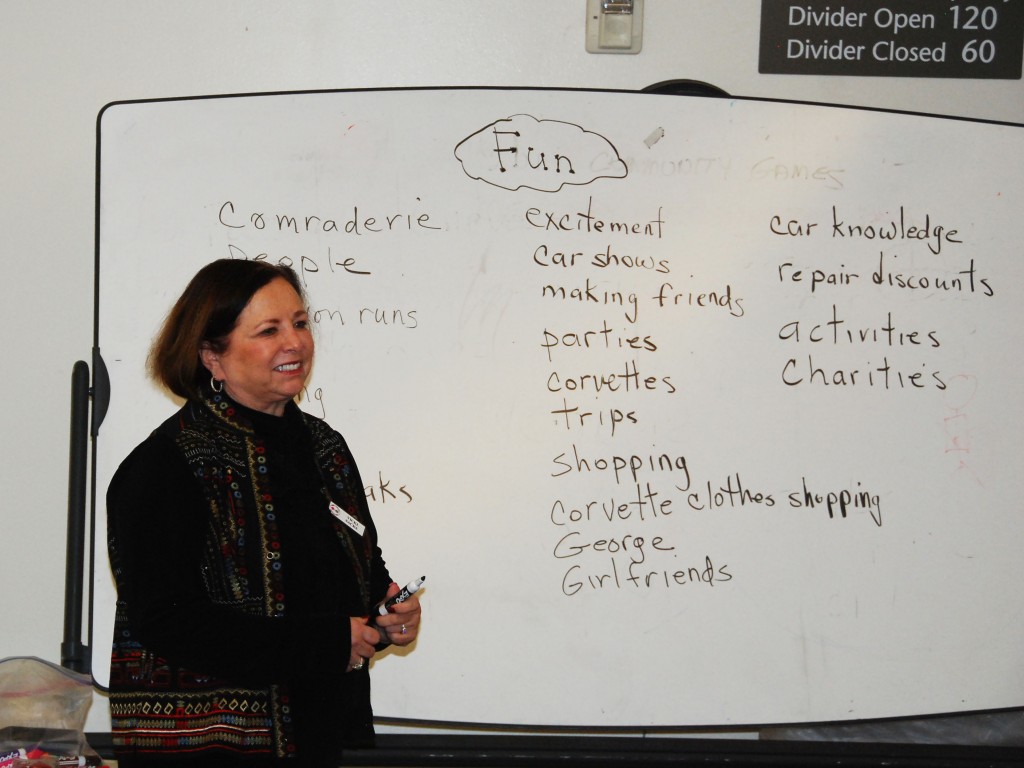 Divider Open 120
Divider Closed 60
Fun
COMMUNITY GAMES
Comraderie
People
runs
excitement
car shows
making friends
parties
corvettes
trips
shopping
corvette clothes shopping
George
Girlfriends
car knowledge
repair discounts
activities
Charities